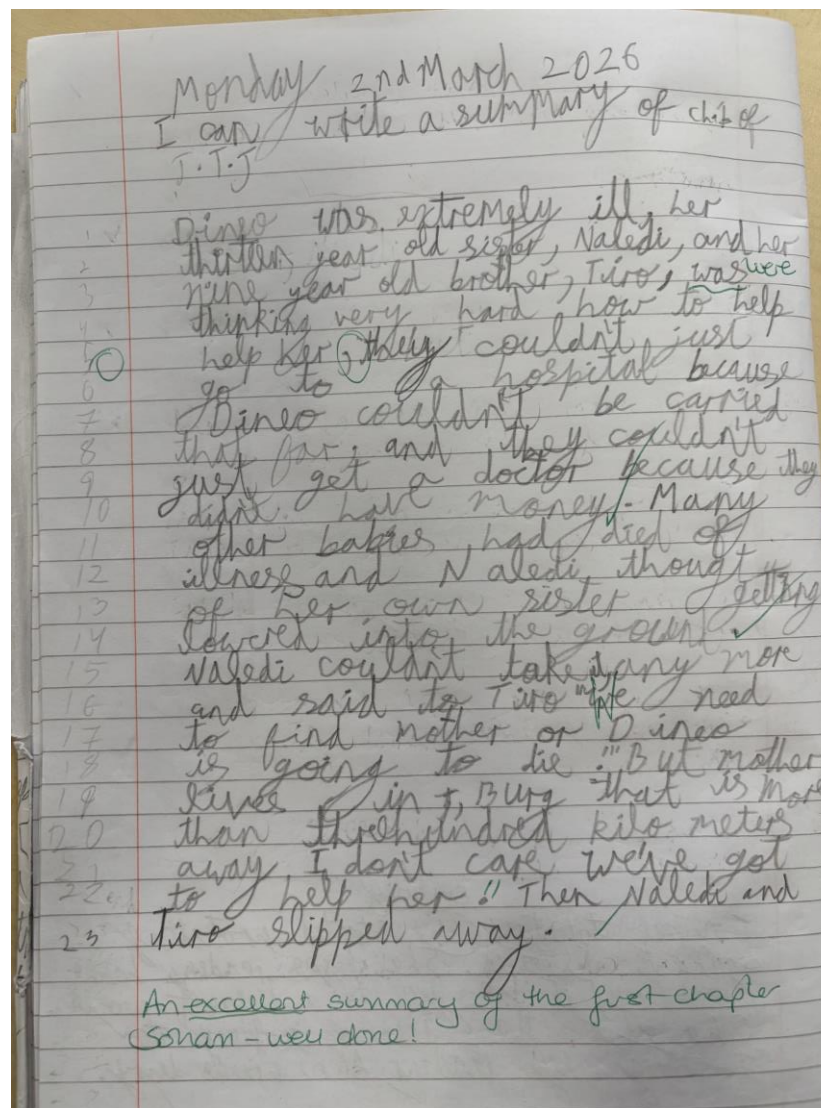 Monday 2nd March 2026
I can write a summary of ch1 of
J.T.J
1 Dineo was extremely ill, her
2 thirteen year old sister, Naledi, and her
3 nine year old brother, Tiro, was were
4 thinking very hard how to help
5 help her, they couldn't just
6 go to a hospital because
7 Dineo couldn't be carried
8 that far, and they couldn't
9 just get a doctor because they
10 didn't have money. Many
11 other babies had died of
12 illness and Naledi thougt
13 of her own sister getting
14 lowered into the ground.
15 Naledi couldn't take it any more
16 and said to Tiro "We need
17 to find mother or Dineo
18 is going to die!" "But mother
19 lives in J,Burg that is more
20 than threehundred kilo meters
21 away, I don't care we've got
22 to help her!" Then Naledi and
23 Tiro slipped away.
An excellent summary of the first chapter
Sohan - well done!